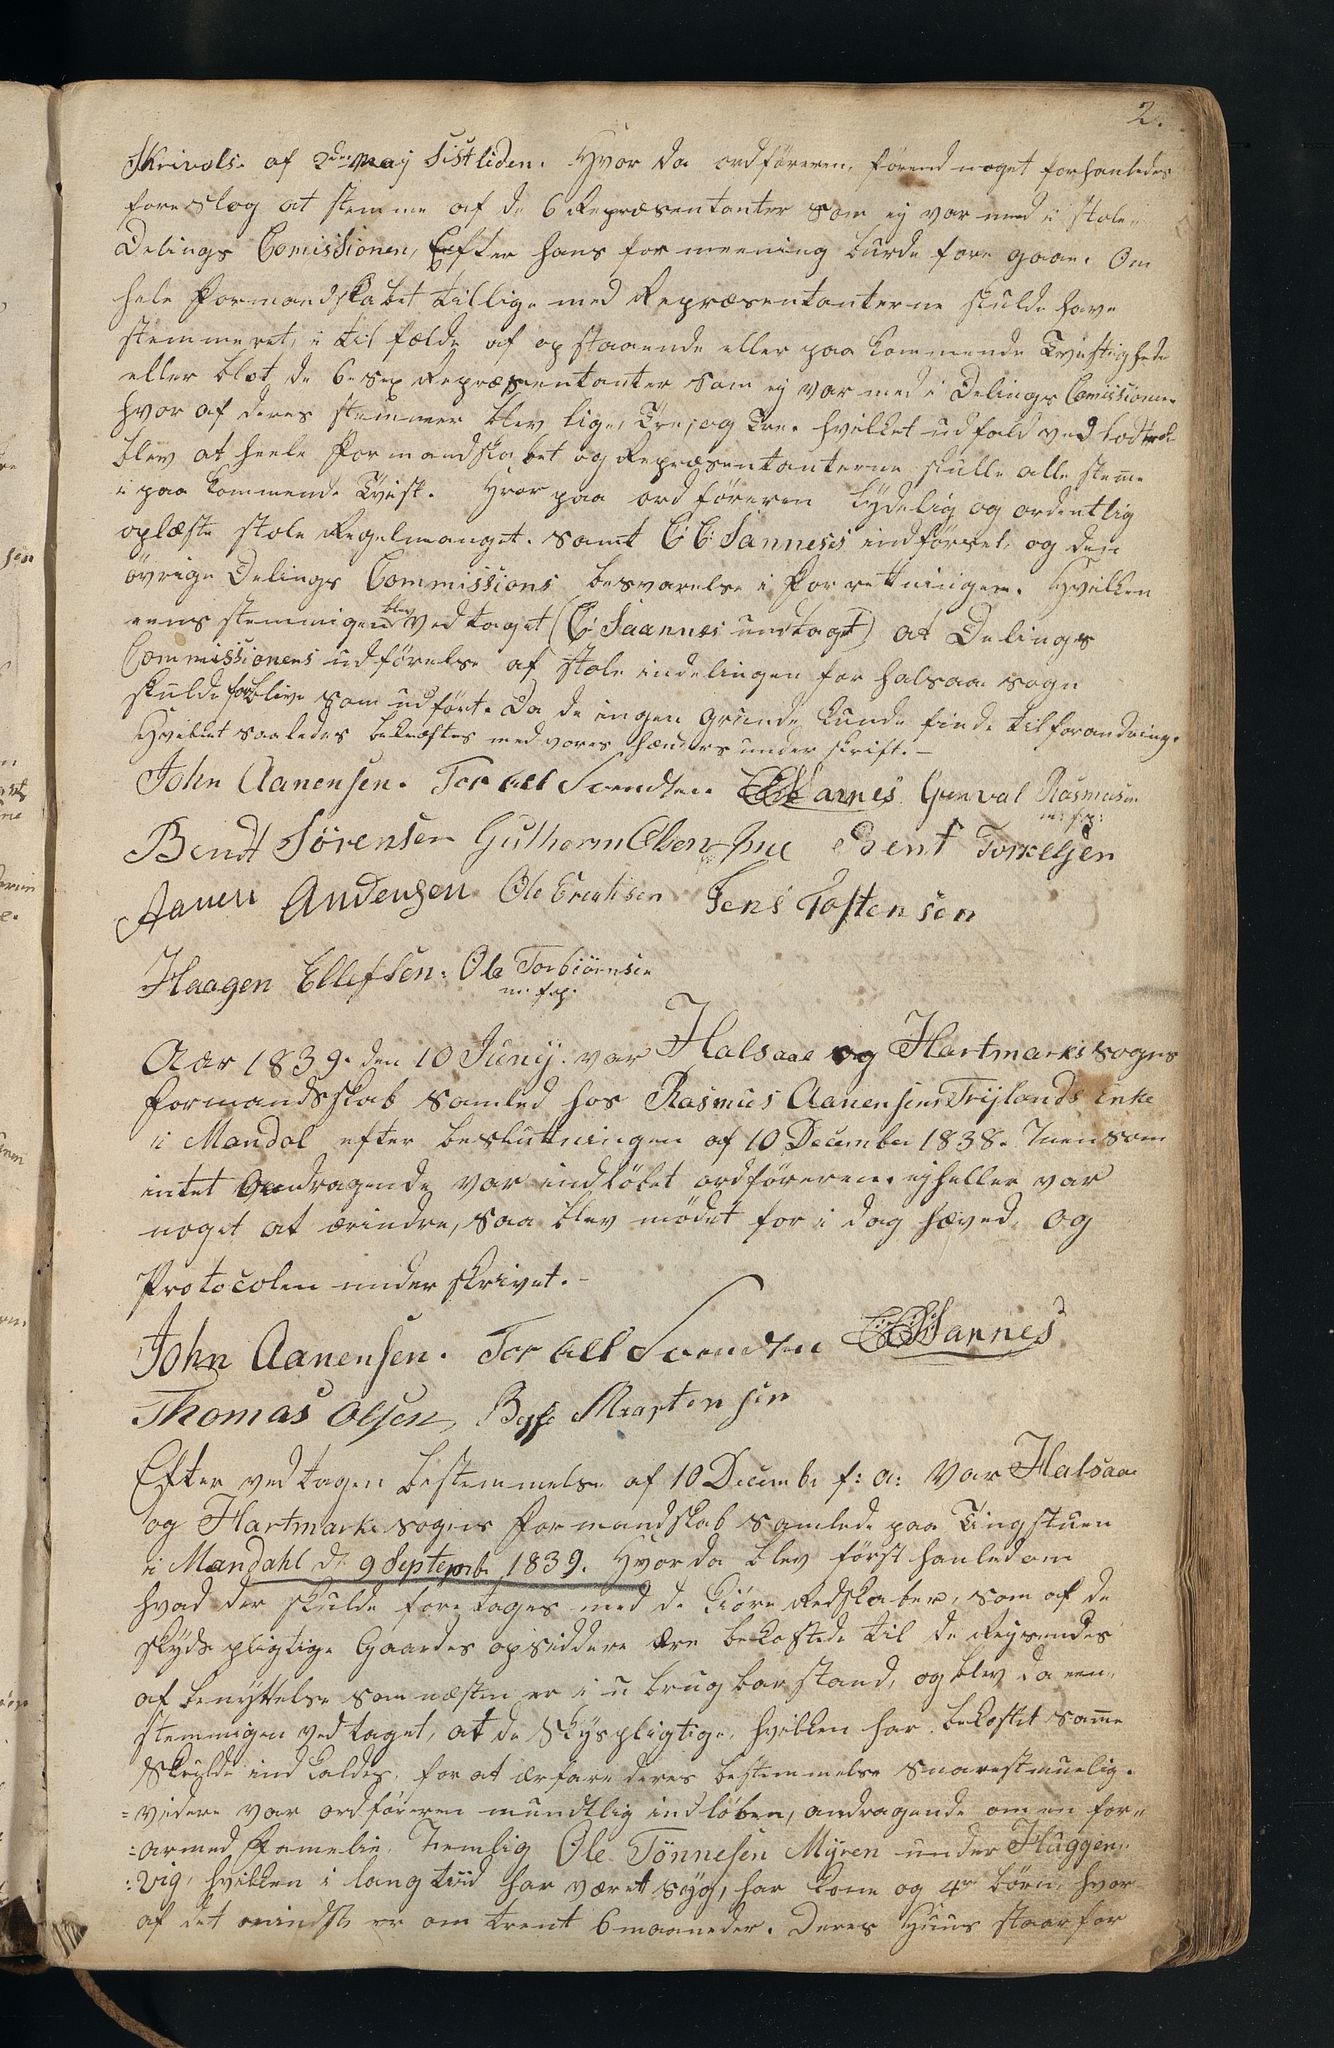 2.
Skrivelse af 2den May sistliden. Hvor da ordföreren, forend noget forhanledes
foreslog at stemme af de 6 Repræsentanter som ej var med i stole
Delings Comissionen, Efter hans formeening burde fore gaae. Om
hele Formandskabet tillige med Repræsentanterne skulde have
stemmeret, i tilfælde af opstaaende eller paakommende Tvistighede
eller blot de 6 sex Repræsentanter som ej var med i Delings Comissionen
hvor af deres stemmer blev lige, Tre, og Tre. hvilket udfald ved
blev at heele Formandskabet og Repræsentanterne skulle alle stemme
i paakommende Tvist. Hvor paa ordföreren tydelig og ordentlig
oplæste stole Regelmanget. samt C C Sanneses indförsel, og den
övrige Delings Commissions besvarelse i Forretningen. Hvilken
eensstemmigen blev vedtaget (C Saannes undtagt) at Delings
Commissionens udförelse af stole indelingen for Halsaa sogn
skulde forblive som udfört. Da de ingen grunde kunde finde til forandring.
Hvilket saaledes bekræftes med vores hænders under skrift. —
John Aanensen. Torkell Svendsen CCSannes Gunval Rasmusen
m: f: p:
Bendt Sörensen Guthorm Olsen Bent Torkelsen
Aanen Andersen Ole Erentsen Jens Tostensen
Haagen Ellefsen. Ole Torbiörnsen
m. f. p.
Aar 1839. den 10 Juny. var Halsaae og Hartmarks sogns
formandsskab samled hos Rasmus Aanensens Trijlands Enke
i Mandal efter beslutningen af 10 December 1838. Men som
intet Andragende var indlöbet ordföreren. ejheller var
noget at ærindre, saa blev mödet for i dag hæved, og
Protocolen under skrivet. —
John Aanensen. Torkell Svendsen CCSannes
Thomas Olsen, Berge Maartensen
Efter vedtagen bestemmelse af 10 Decembr f: a: Var Halsaae
og Hartmarks sogns Formandskab samlede paa Tingstuen
i Mandahl d. 9 Septembr 1839. Hvor da blev först hanled om
hvad der skulde foretages med de Kiöre Redskaber, som af de
skyds pligtige Gaardes opsiddere ere bekostede til de Reysendes
af benyttelse som næsten er i u brugbar stand, og blev da een„
stemmigen vedtaget, at de Skyspligtige, hvilken har bekostet samme
Skulde indkaldes, for at ærfare deres bestemmelse snarestmuelig.
=videre var ordföreren mundtlig indlöben, andragende om en for„
=armed Familie, Nemlig Ole Tönnesen Myren under Huggen„
=vig, hvilken i lang tiid har været syg, har kone og 4re börn, hvor
af det mindste er om trent 6 maaneder. Deres Huus staar for